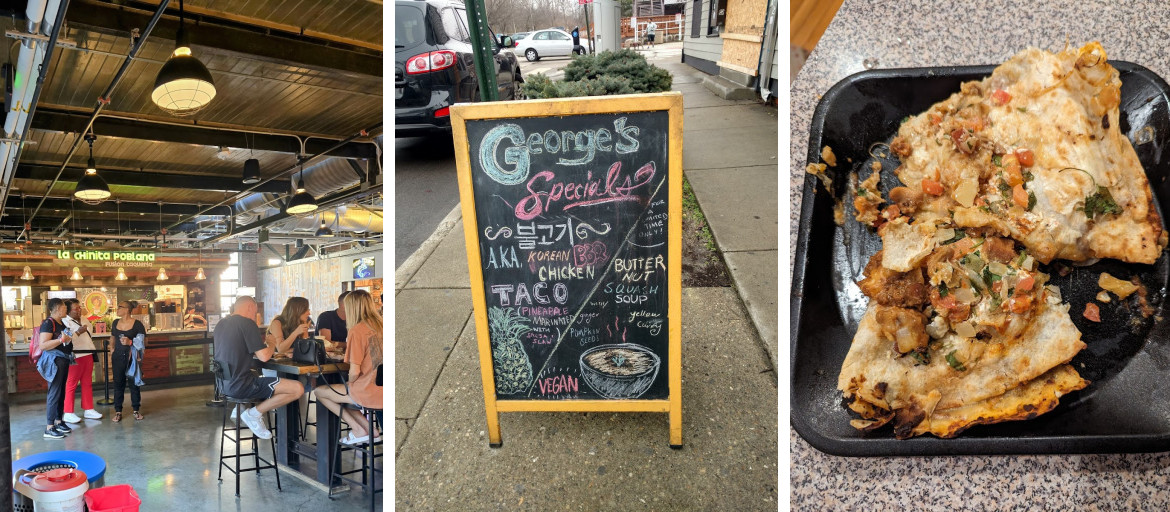 la CHiNiTa PoBLaNa
FUSiON TaQUERia
George's
Specials
불고기
A.K.A. KOREAN BBQ
CHICKEN
TACO
(PINEAPPLE
MARINATED
WITH
SALSA/
SLAW)
VEGAN
FOR
A
LIMITED
TIME
ONLY!
BUTTER
NUT
SQUASH
SOUP
with
ginger
yellow
curry
PUMPKIN
SEEDS